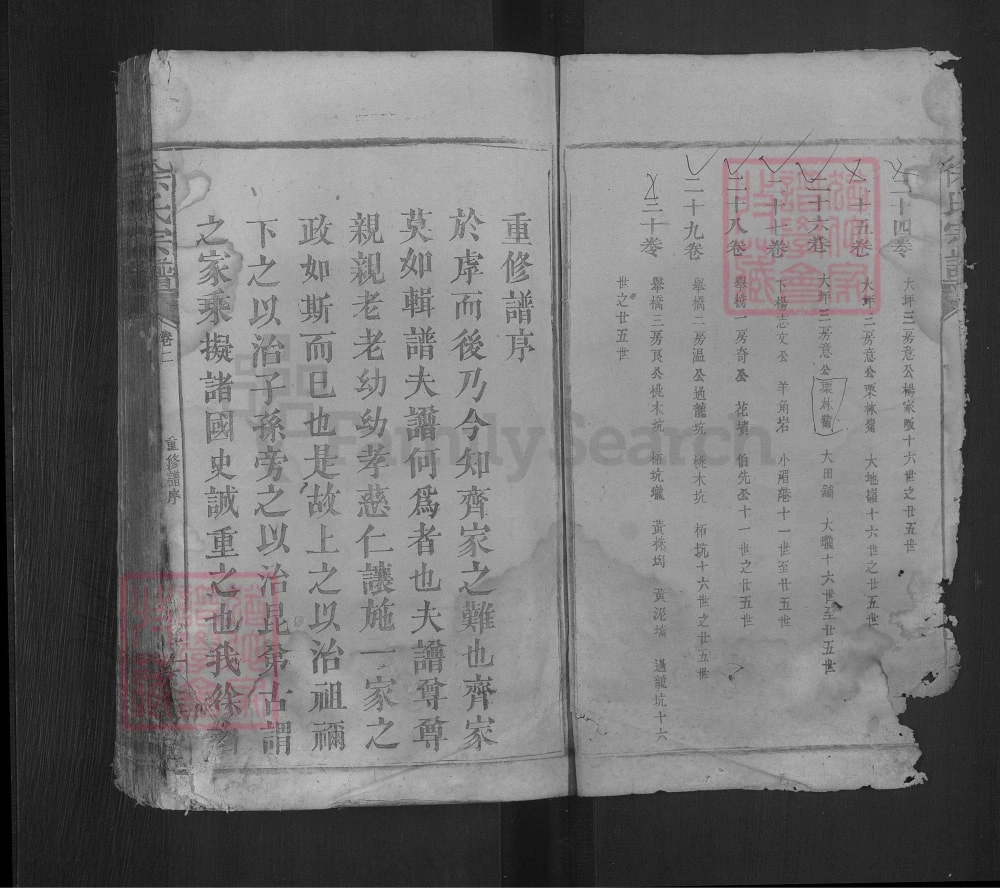 二十四卷 大坪三房意公楊家畈十六世之廿五世
二十五卷 大坪二房意公栗林鬣 大地嶺十六世之廿五世
二十六卷 大坪三房意公栗林鬣 大田鋪 大壠十六世至廿五世
二十七卷 下楊志文公 羊角岩 小湄港十一世至廿五世
二十八卷 舉橋一房奇公 花墳 伯先公十一世之廿五世
二十九卷 舉橋二房温公過龍坑 桃木坑 柿坑十六世之廿五世
三十卷 舉橋三房良公桃木坑 柿坑壠 黃株坳 黃泥墈 過龍坑十六
世之廿五世
重修譜序
於虖而後乃今知齊家之難也齊家
莫如輯譜夫譜何爲者也夫譜尊尊
親親老老幼幼孝慈仁讓施一家之
政如斯而已也是故上之以治祖禰
下之以治子孫旁之以治昆弟古謂
之家乘擬諸國史誠重之也我徐
徐氏宗譜 卷二 重修譜序
FamilySearch